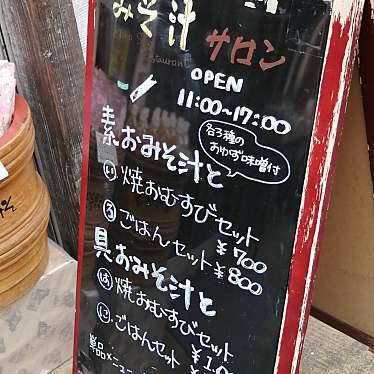 みそ汁
サロン
OPEN
11:00~17:00
各3種の
おかず味噌付
素おみそ汁と
い 焼おむすびセット
¥700
ろ ごはんセット ¥800
具おみそ汁と
は 焼おむすびセット
に ごはんセット
単品メニュー